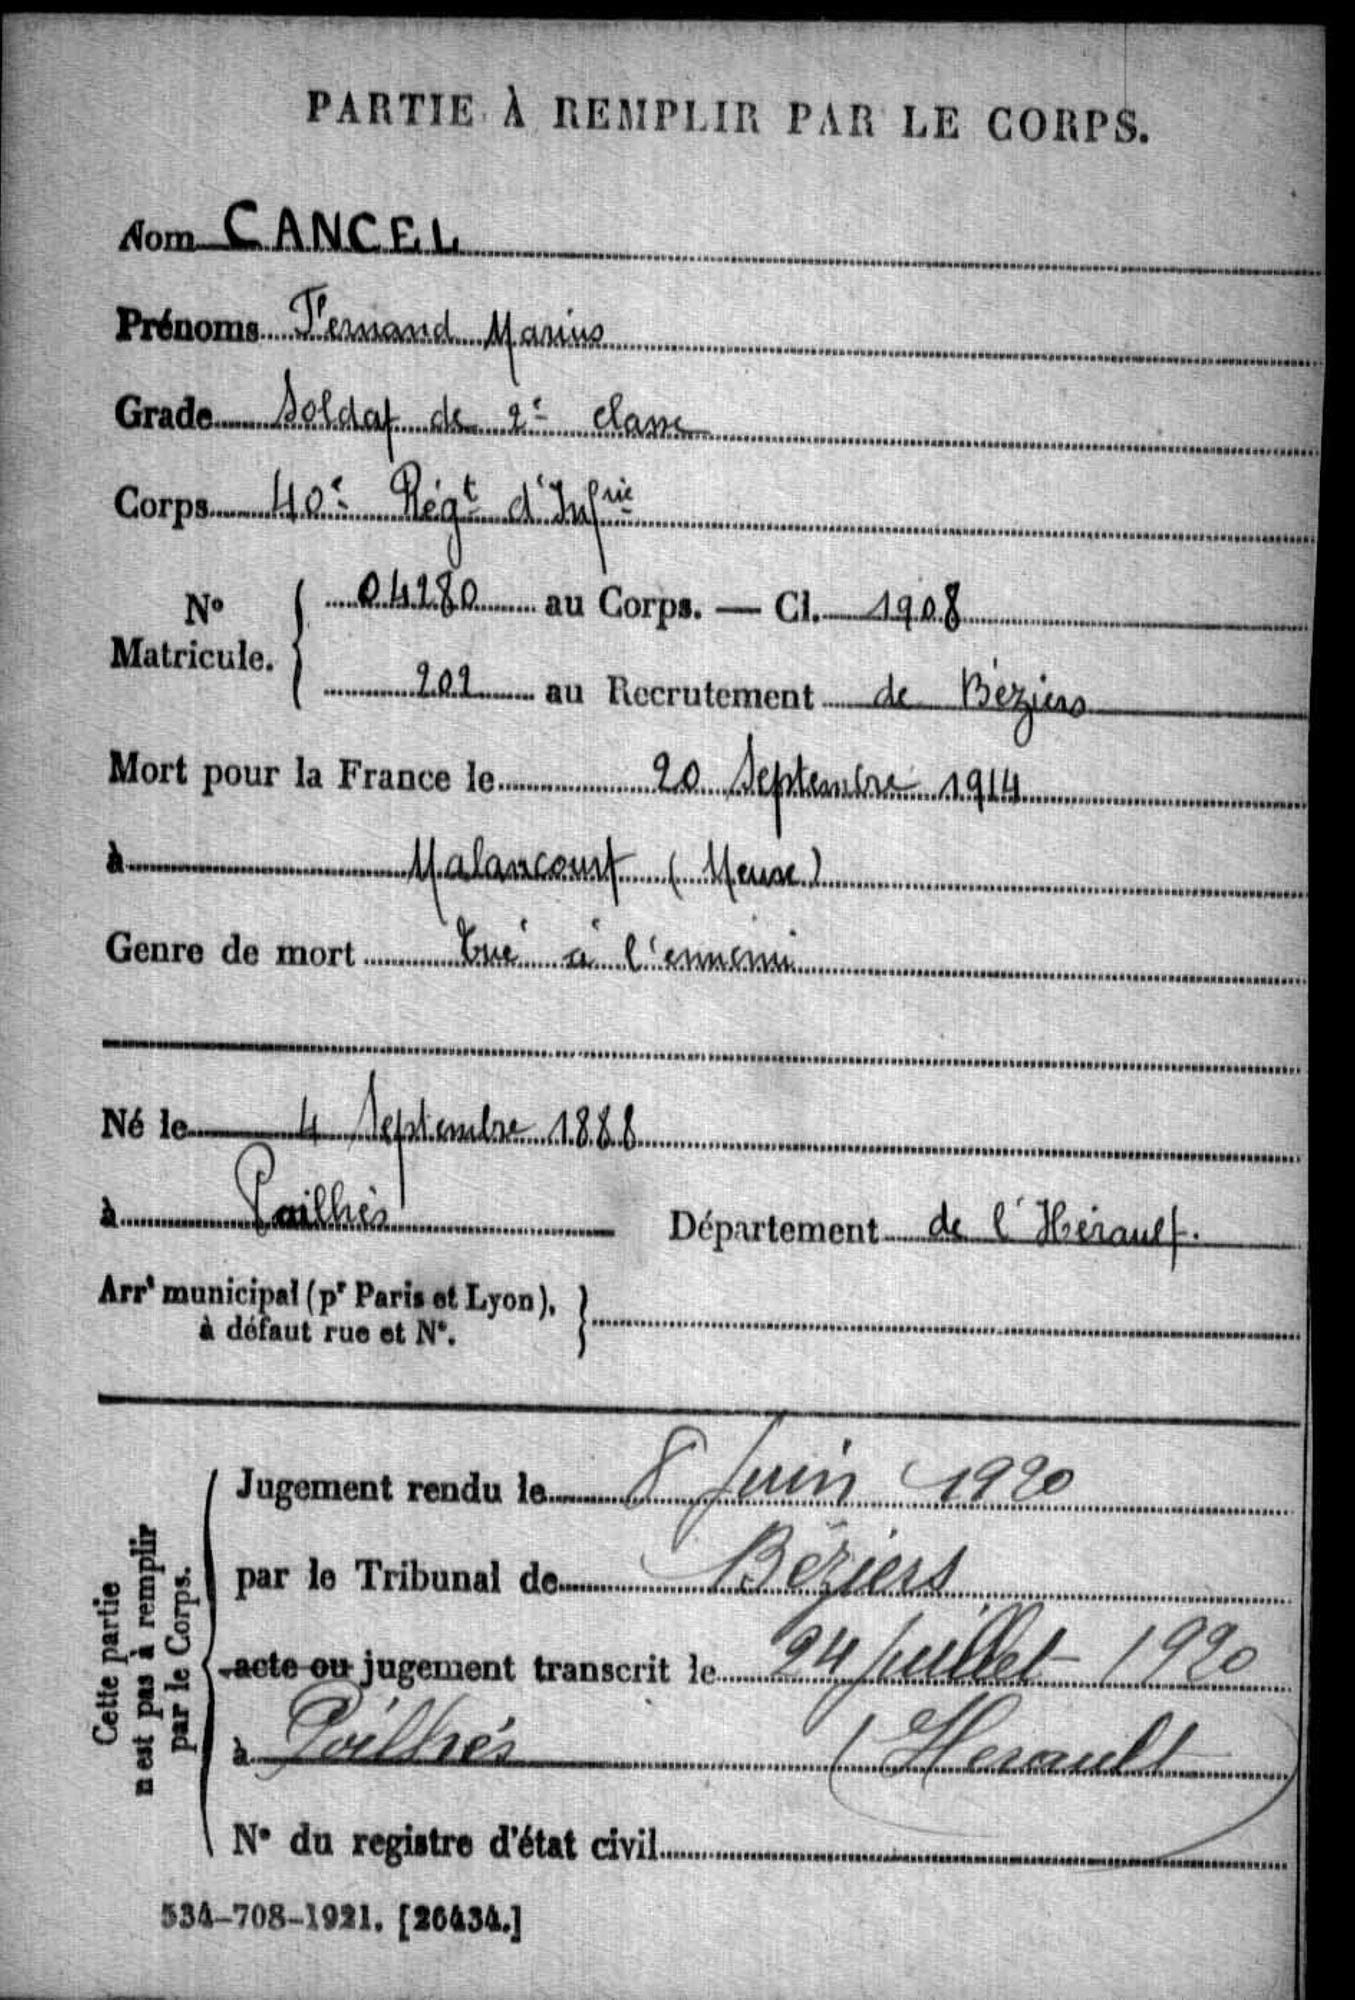 PARTIE À REMPLIR PAR LE CORPS.
Nom CANCEL
Prénoms Fernand Marius
Grade Soldat de 2e classe
Corps 40e Régt d'Infrie
No Matricule. { 04280 au Corps. — Cl. 1908
202 au Recrutement de Béziers
Mort pour la France le 20 Septembre 1914
à Malancourt (Meuse)
Genre de mort tué à l'ennemi
Né le 4 Septembre 1888
à Pailhès Département de l'Hérault.
Arrt municipal (pr Paris et Lyon), }
à défaut rue et No.
Cette partie
n'est pas à remplir
par le Corps.
Jugement rendu le 8 Juin 1920
par le Tribunal de Béziers
acte ou jugement transcrit le 24 Juillet 1920
à Poilhés (Herault)
No du registre d'état civil
534-708-1921. [26434.]